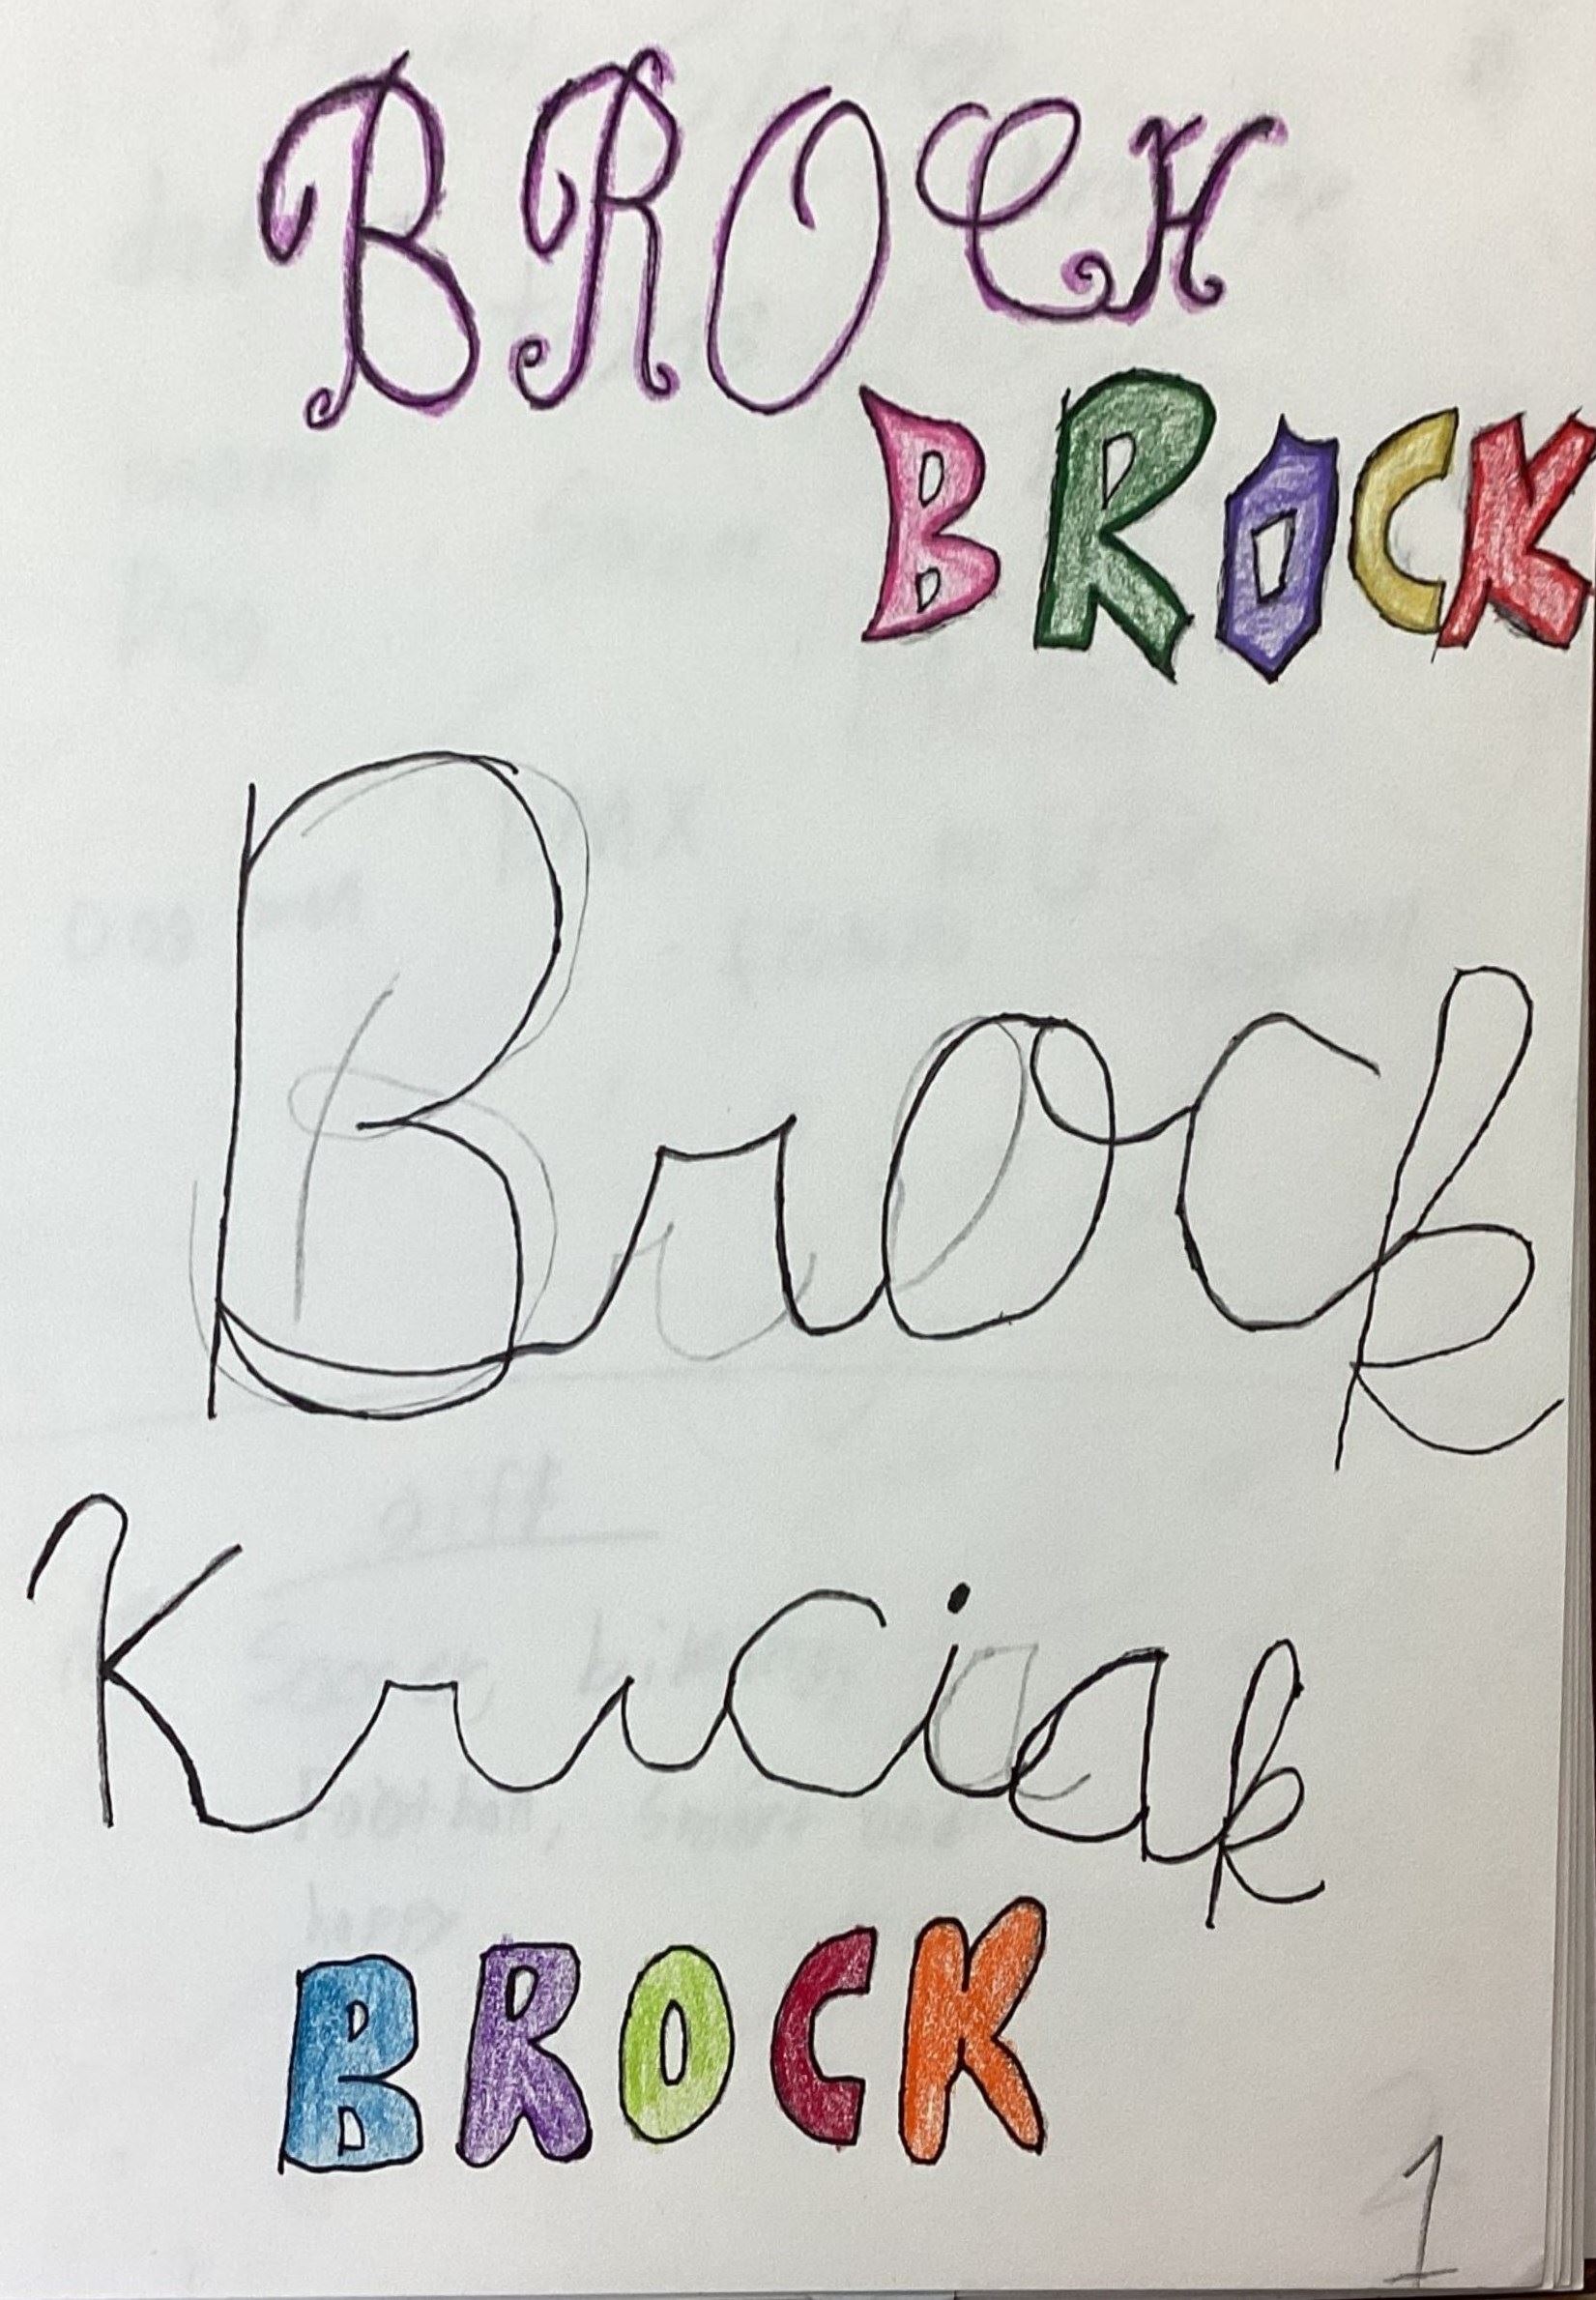 BROCK
BROCK
Brock
Kruciak
BROCK
1